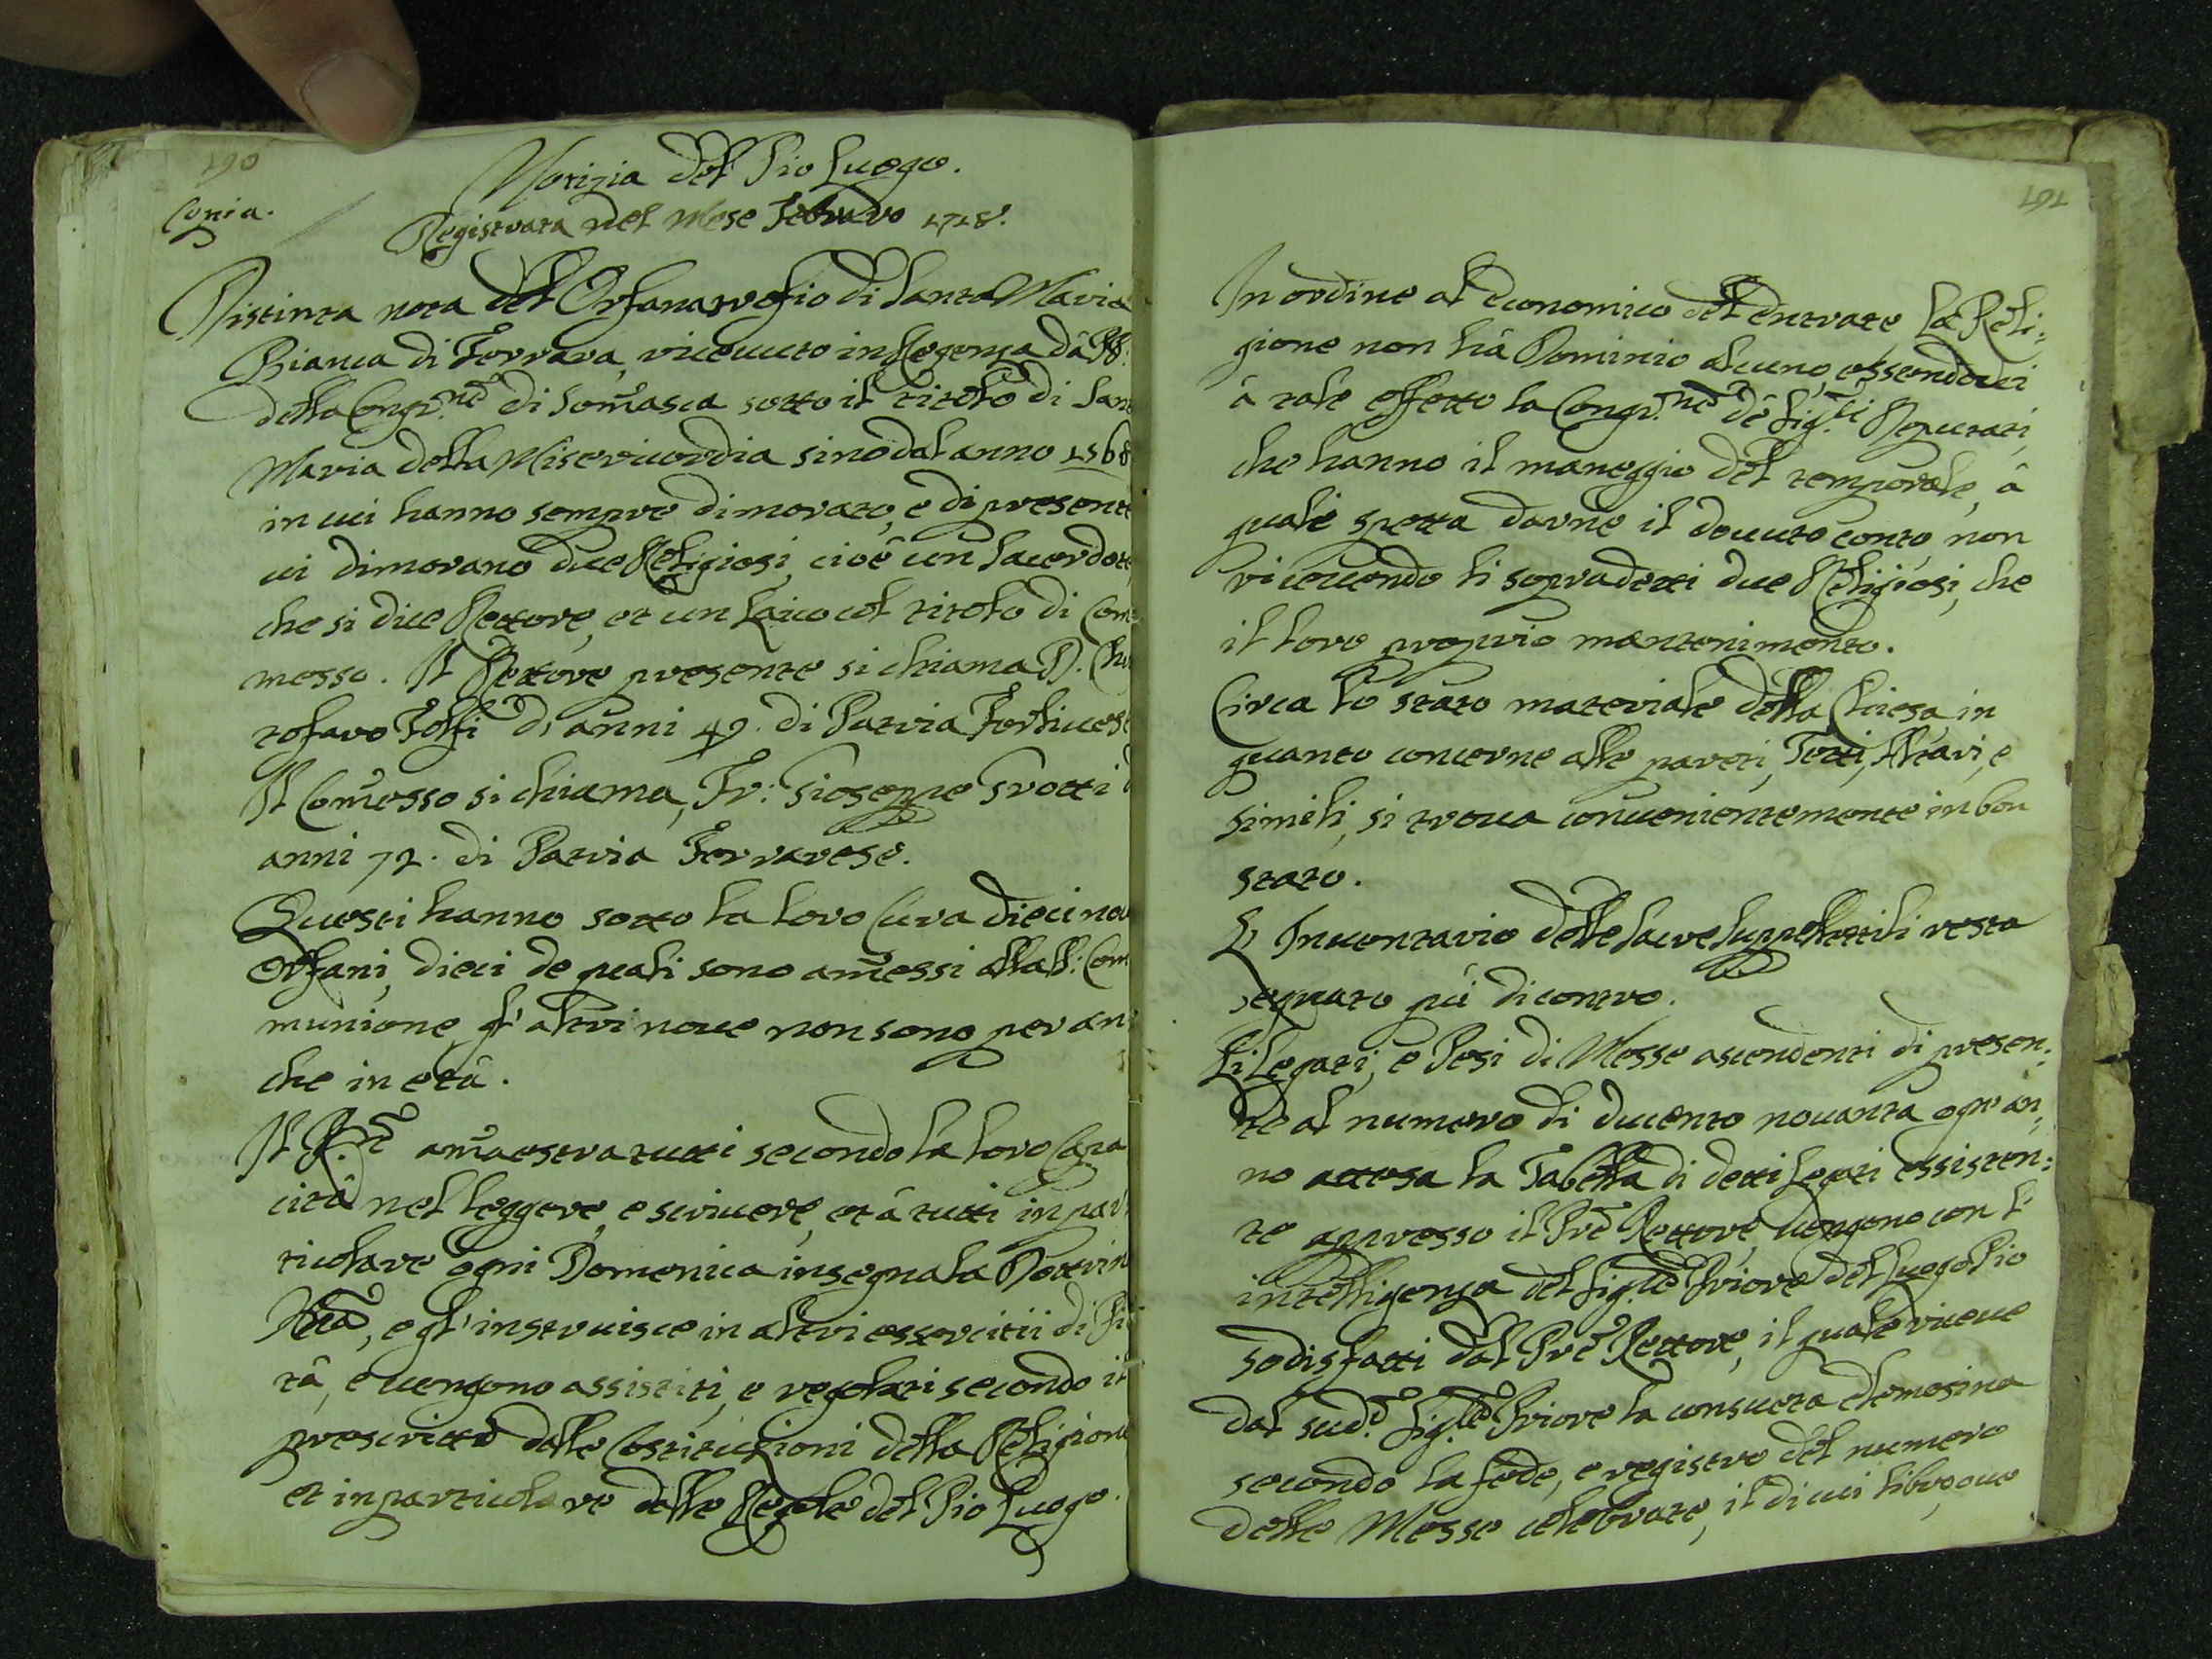 190
Copia.
Notizia del Pio Luogo.
Registrata nel Mese Febraro 1718.
Distinta nota del Orfanatrofio di Santa Maria
Bianca di Ferrara, riceuuto in Regenza dà PP.
della Congr.ne di Som̃asca sotto il titolo di San
Maria della Misericordia sino dal anno 1568
in cui hanno sempre dimorato, e di presente
ui dimorano due Religiosi, cioè un Sacerdote
che si dice Rettore, et un Laico col titolo di Com
messo. Il Rettore presente si chiama D. Chri
tofaro Folfi d'anni 49. di Patria Forliuese
Il Com̃esso si chiama, Fr: Gioseppe Grotti d
anni 72. di Patria Ferrarese.
Questi hanno sotto la loro Cura diecinou
Orfani, dieci de quali sono am̃essi alla SS. Com
munione, gl'altri noue non sono per an:
che in età.
Il P.re am̃aestra tutti secondo la loro Capa
cità nel leggere, e scriuere, et à tutti in par
ticolare ogni Domenica insegna la Dottrin
Xña, e gl'instruisce in altri essercitii di Pi
tà, e uengono assistiti, e regolati secondo il
prescritto dalle Costituzioni della Religione
et in particolare dalle Regole del Pio Luogo.
191
In ordine al economico del entrate, la Reli:
gione non hà Dominio alcuno, essendoui
à tale effetto la Congr.ne de Sig.ri Deputati,
che hanno il maneggio del temporale, à
quali spetta darne il douuto conto, non
riceuendo li sopradetti due Religiosi, che
il loro proprio mantenimento.
Circa lo stato materiale della Chiesa in
quanto concerne alle pareti, Tetti, Altari, e
simili, si troua conuenientemente in bon
stato.
L'Inuentario delle Sacre Suppellettili resta
segnato più di contro.
Li Legati, e Pesi di Messe ascendenti di presen:
te al numero di ducento nouanta ogn'an:
no attesa la Tabella di detti Legati essisten:
te appresso il Prẽ Rettore, uengono con l'
intelligenza del Sig.re Priore del Luogo Pio
sodisfatti dal Prẽ Rettore, il quale riceue
dal sud.o Sig.re Priore la consueta elemosina
secondo la fede, e registro del numero
delle Messe celebrate, il di cui libro, oue